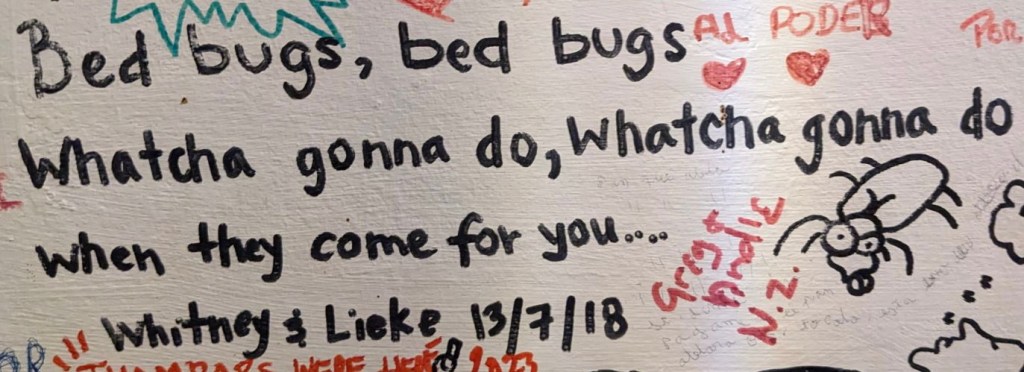 Bed bugs, bed bugs
Whatcha gonna do, Whatcha gonna do
when they come for you....
Whitney & Lieke 13/7/18
AL PODER
POR
Greg &
Andie
N.Z.
WERE HERE 2023